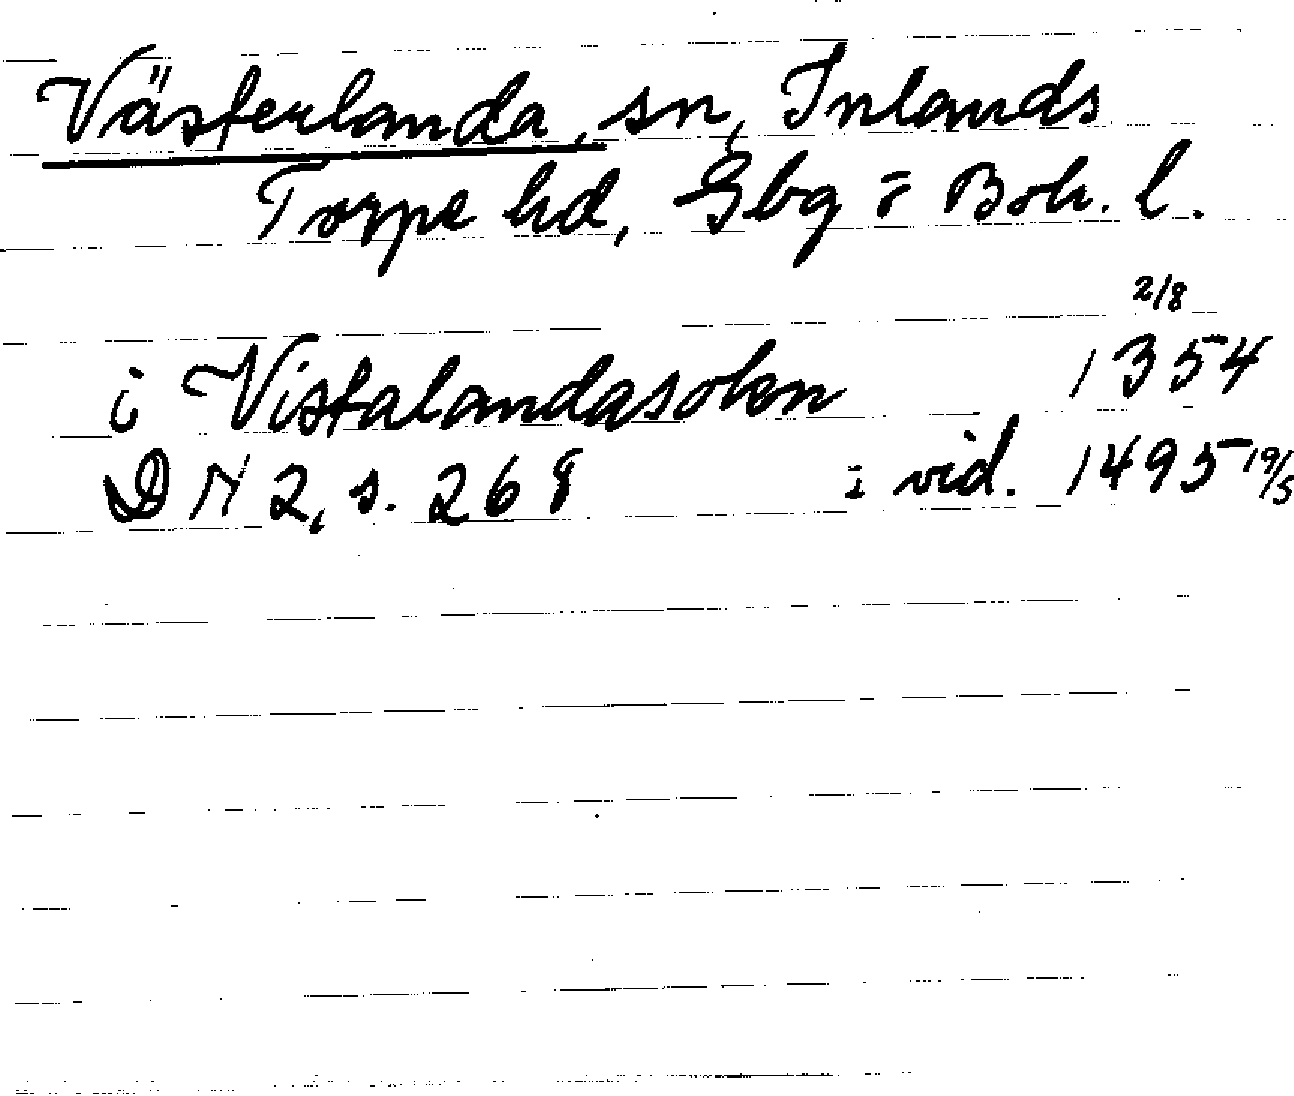 Västerlanda, sn, Inlands
Torpe hd, Gbg o Boh. l.
2/8
i Vistalandasoken 1354
DN 2, s. 268 i vid. 1495 19/5